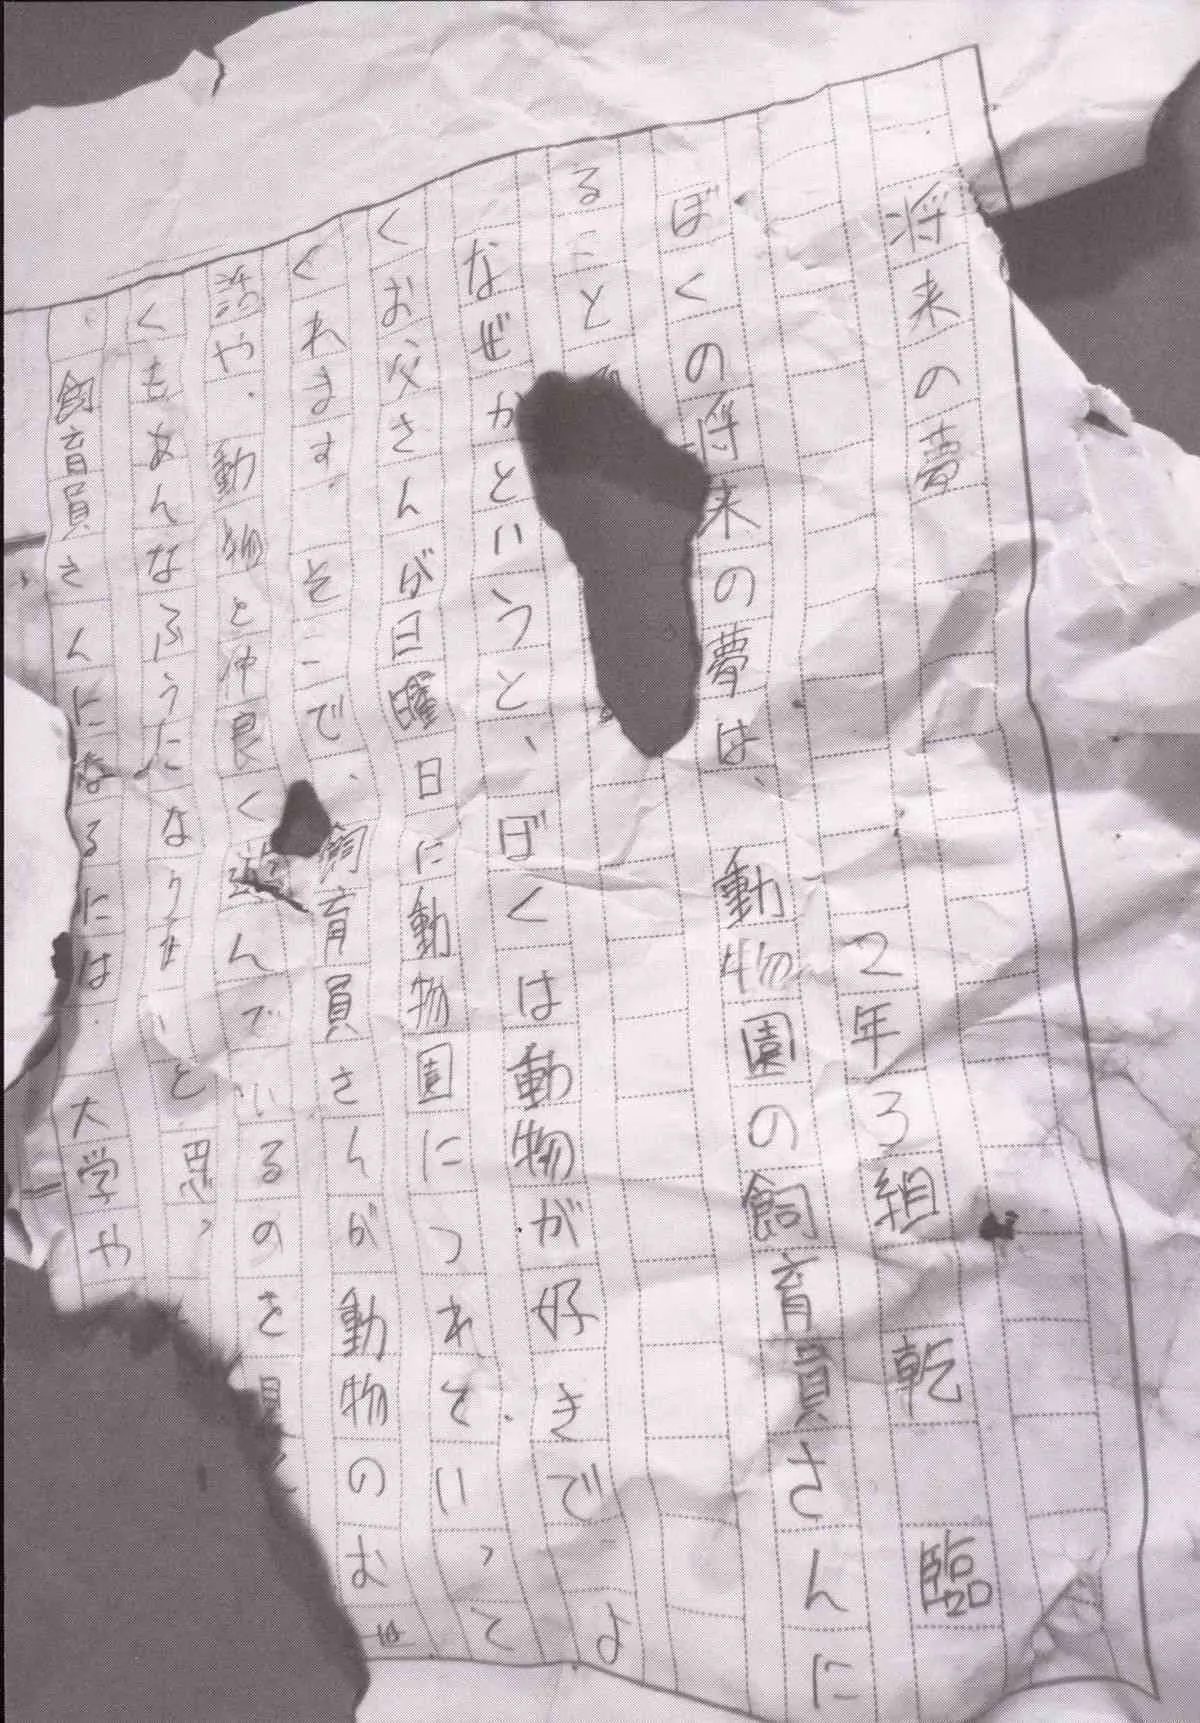 将来の夢
2年3組 乾 臨
ぼくの将来の夢は、動物園の飼育員さんに
ること
なぜかというと、ぼくは動物が好きでよ
くお父さんが日曜日に動物園につれていって
くれます。そこで、飼育員さんが動物のおせ
話や、動物と仲良く遊んでいるのを見
くもあんなふうになりたいと思っ
、飼育員さんになるには、大学や